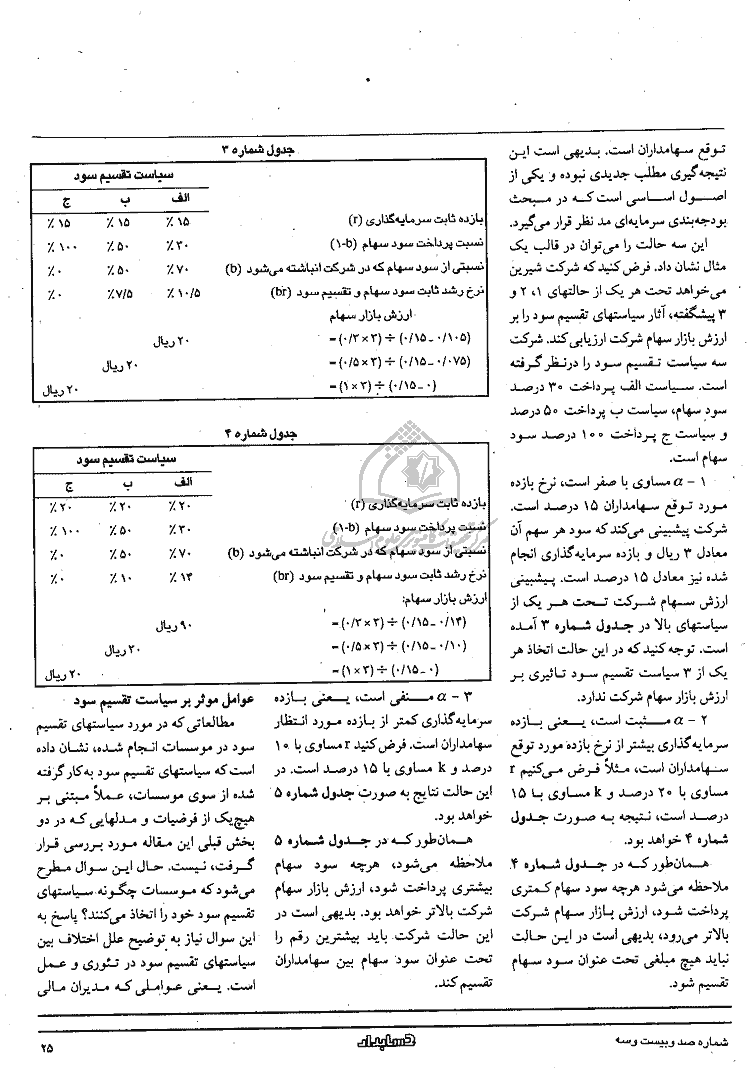 توقع سهامداران است. بدیهی است این
نتیجه‌گیری مطلب جدیدی نبوده و یکی از
اصول اساسی است که در مبحث
بودجه‌بندی سرمایه‌ای مد نظر قرار می‌گیرد.
این سه حالت را می‌توان در قالب یک
مثال نشان داد. فرض کنید که شرکت شیرین
می‌خواهد تحت هر یک از حالتهای ۱، ۲ و
۳ پیشگفته، آثار سیاستهای تقسیم سود را بر
ارزش بازار سهام شرکت ارزیابی‌کند. شرکت
سه سیاست تقسیم سود را درنظر گرفته
است. سیاست الف پرداخت ۳۰ درصد
سود سهام، سیاست ب پرداخت ۵۰ درصد
و سیاست ج پرداخت ۱۰۰ درصد سود
سهام است.
۱ - α مساوی با صفر است، نرخ بازده
مورد توقع سهامداران ۱۵ درصد است.
شرکت پیشبینی می‌کند که سود هر سهم آن
معادل ۳ ریال و بازده سرمایه‌گذاری انجام
شده نیز معادل ۱۵ درصد است. پیشبینی
ارزش سهام شرکت تحت هر یک از
سیاستهای بالا در جدول شماره ۳ آمده
است. توجه کنید که در این حالت اتخاذ هر
یک از ۳ سیاست تقسیم سود تاثیری بر
ارزش بازار سهام شرکت ندارد.
۲ - α مثبت است، یعنی بازده
سرمایه‌گذاری بیشتر از نرخ بازده مورد توقع
سهامداران است، مثلاً فرض می‌کنیم r
مساوی با ۲۰ درصد و k مساوی با ۱۵
درصد است، نتیجه به صورت جدول
شماره ۴ خواهد بود.
همان‌طور که در جدول شماره ۴
ملاحظه می‌شود هرچه سود سهام کمتری
پرداخت شود، ارزش بازار سهام شرکت
بالاتر می‌رود، بدیهی است در این حالت
نباید هیچ مبلغی تحت عنوان سود سهام
تقسیم شود.
جدول شماره ۳
سیاست تقسیم سود
الف ب ج
بازده ثابت سرمایه‌گذاری (r) ۱۵ ٪ ۱۵ ٪ ۱۵ ٪
نسبت پرداخت سود سهام (۱-b) ۳۰ ٪ ۵۰ ٪ ۱۰۰ ٪
نسبتی از سود سهام که در شرکت انباشته می‌شود (b) ۷۰ ٪ ۵۰ ٪ ۰ ٪
نرخ رشد ثابت سود سهام و تقسیم سود (br) ۱۰/۵ ٪ ۷/۵٪ ۰ ٪
ارزش بازار سهام
(۰/۱۵ ـ ۰/۱۰۵) ÷ (۰/۳ × ۳) = ۲۰ ریال
(۰/۱۵ ـ ۰/۰۷۵) ÷ (۰/۵ × ۳) = ۲۰ ریال
(۰/۱۵ ـ ۰) ÷ (۱ × ۳) = ۲۰ ریال
جدول شماره ۴
سیاست تقسیم سود
الف ب ج
بازده ثابت سرمایه‌گذاری (r) ۲۰ ٪ ۲۰ ٪ ۲۰ ٪
نسبت پرداخت سود سهام (۱-b) ۳۰ ٪ ۵۰ ٪ ۱۰۰ ٪
نسبتی از سود سهام که در شرکت انباشته می‌شود (b) ۷۰ ٪ ۵۰ ٪ ۰ ٪
نرخ رشد ثابت سود سهام و تقسیم سود (br) ۱۴ ٪ ۱۰ ٪ ۰ ٪
ارزش بازار سهام:
(۰/۱۵ ـ ۰/۱۴) ÷ (۰/۳ × ۳) = ۹۰ ریال
(۰/۱۵ ـ ۰/۱۰) ÷ (۰/۵ × ۳) = ۲۰ ریال
(۰/۱۵ ـ ۰) ÷ (۱ × ۳) = ۲۰ ریال
۳ - α منفی است، یعنی بازده
سرمایه‌گذاری کمتر از بازده مورد انتظار
سهامداران است. فرض کنید r مساوی با ۱۰
درصد و k مساوی با ۱۵ درصد است. در
این حالت نتایج به صورت جدول شماره ۵
خواهد بود.
همان‌طور که در جدول شماره ۵
ملاحظه می‌شود، هرچه سود سهام
بیشتری پرداخت شود، ارزش بازار سهام
شرکت بالاتر خواهد بود. بدیهی است در
این حالت شرکت باید بیشترین رقم را
تحت عنوان سود سهام بین سهامداران
تقسیم کند.
عوامل موثر بر سیاست تقسیم سود
مطالعاتی که در مورد سیاستهای تقسیم
سود در موسسات انجام شده، نشان داده
است که سیاستهای تقسیم سود به‌کار گرفته
شده از سوی موسسات، عملاً مبتنی بر
هیچ‌یک از فرضیات و مدلهایی که در دو
بخش قبلی این مقاله مورد بررسی قرار
گرفت، نیست. حال این سوال مطرح
می‌شود که موسسات چگونه سیاستهای
تقسیم سود خود را اتخاذ می‌کنند؟ پاسخ به
این سوال نیاز به توضیح علل اختلاف بین
سیاستهای تقسیم سود در تئوری و عمل
است. یعنی عواملی که مدیران مالی
شماره صد و بیست و سه
حسابدار
۲۵